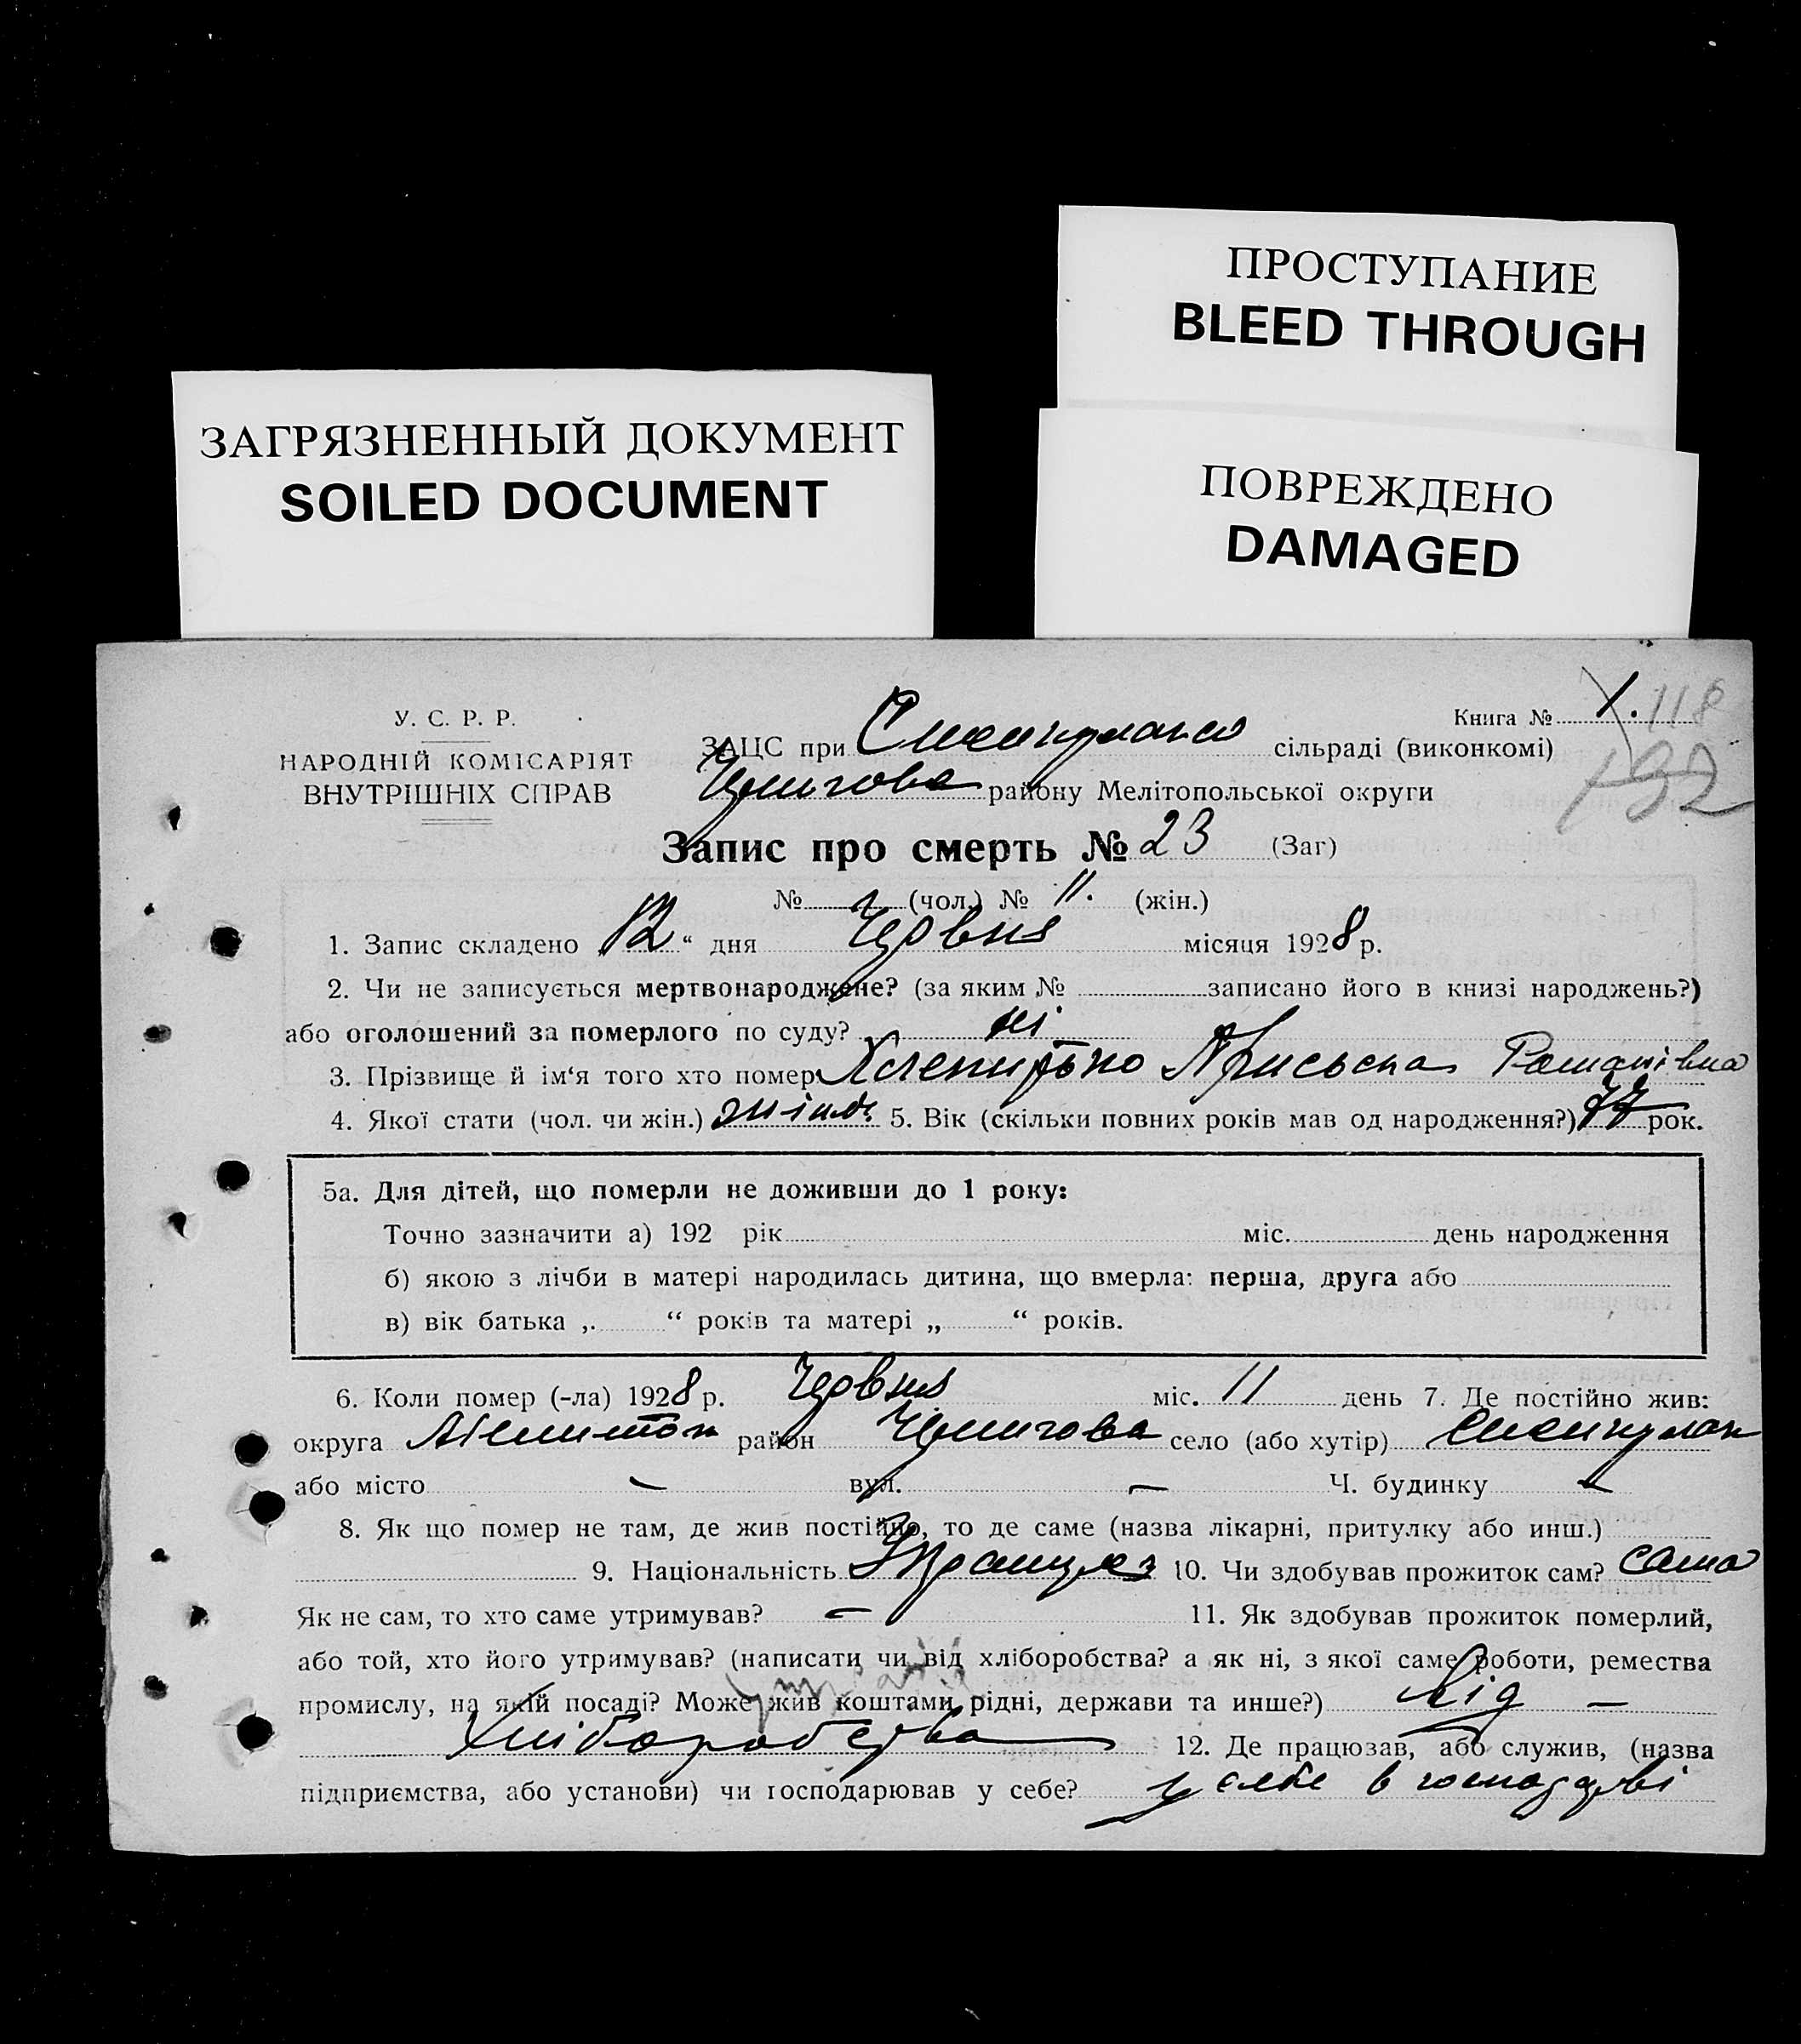 ПРОСТУПАНИЕ
BLEED THROUGH
ЗАГРЯЗНЕННЫЙ ДОКУМЕНТ
SOILED DOCUMENT
ПОВРЕЖДЕНО
DAMAGED
У. С. Р. Р.
НАРОДНІЙ КОМІСАРІЯТ
ВНУТРІШНІХ СПРАВ
Книга № 1. 118
192
ЗАЦС при сільраді (виконкомі)
району Мелітопольської округи
Запис про смерть № 23 (Заг)
№ (чол.) № 11. (жін.)
1. Запис складено 12 “ дня Червня місяця 1928 р.
2. Чи не записується мертвонароджене? (за яким № записано його в книзі народжень?)
або оголошений за померлого по суду? ні
3. Прізвище й ім‘я того хто помер Романівна
4. Якої стати (чол. чи жін.) 5. Вік (скільки повних років мав од народження?) 77 рок.
5а. Для дітей, що померли не доживши до 1 року:
Точно зазначити а) 192 рік міс. день народження
б) якою з лічби в матері народилась дитина, що вмерла: перша, друга або
в) вік батька ,. “ років та матері „ “ років.
6. Коли помер (-ла) 1928 р. Червня міс. 11 день 7. Де постійно жив:
округа район село (або хутір)
або місто — вул. — Ч. будинку —
8. Як що помер не там, де жив постійно, то де саме (назва лікарні, притулку або инш.)
9. Національність 10. Чи здобував прожиток сам? сама
Як не сам, то хто саме утримував? — 11. Як здобував прожиток померлий,
або той, хто його утримував? (написати чи від хліборобства? а як ні, з якої саме роботи, ремества
промислу, на якій посаді? Може жив коштами рідні, держави та инше?) від —
хліборобства 12. Де працював, або служив, (назва
підприємства, або установи) чи господарював у себе? у себе в